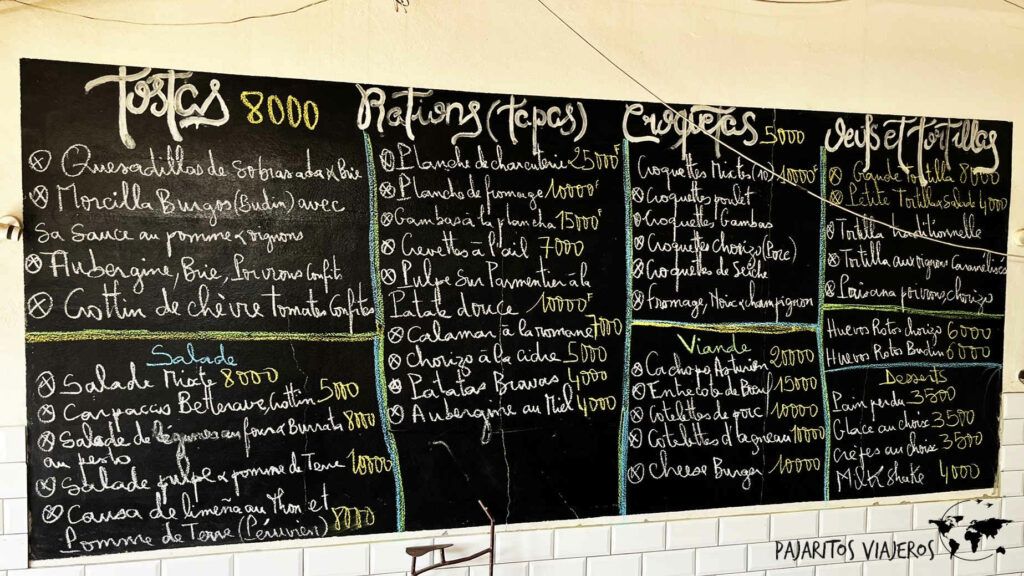 Tostas 8000
Quesadillas de Sobrasada & Brie
Morcilla Burgos (Budin) avec
sa Sauce au pomme & oignons
Aubergine, Brie, Poivrons Confits
Cottin de chèvre tomates Confites
Salade
Salade Mixte 8000
Carpacas Betterave, Cottin 5000
Salade de légumes au four & Burrata 8000
au pesto
Salade pulpe & pomme de Terre 10000
Causa de limeña au Thon et
Pomme de Terre (Péruvien) 8000
Rations (tapas)
Planche de charcuterie 25000F
Planche de fromage 10000F
Gambas à la plancha 15000F
Crevettes à l'ail 7000
Pulpe sur Parmentier à la
Patate douce 10000F
Calamar à la romane 7000
Chorizo à la cidre 5000
Patatas Bravas 4000
Aubergine au Miel 4000
Croquetas 5000
Croquettes Mixtes (10) 10000F
Croquettes poulet
Croquettes Gambas
Croquettes chorizo (Porc)
Croquettes de Seiche
Fromage, Noix & champignon
Viande
Cachopo Asturien 20000
Entrecôte de Bœuf 15000
Cotelettes de porc 10000
Cotelettes d'agneau 10000
Cheese Burger 10000
Oeufs et Tortillas
Grande Tortilla 8000
Petite Tortilla Salade 4000
Tortilla traditionnelle
Tortilla aux oignons Caramélisés
Louisana poivrons, chorizo
Huevos Rotos chorizo 6000
Huevos Roto Budin 6000
Desserts
Pain perdu 3500
Glace au choix 3500
Crêpes au choix 3500
Milk Shake 4000
PAJARITOS VIAJEROS